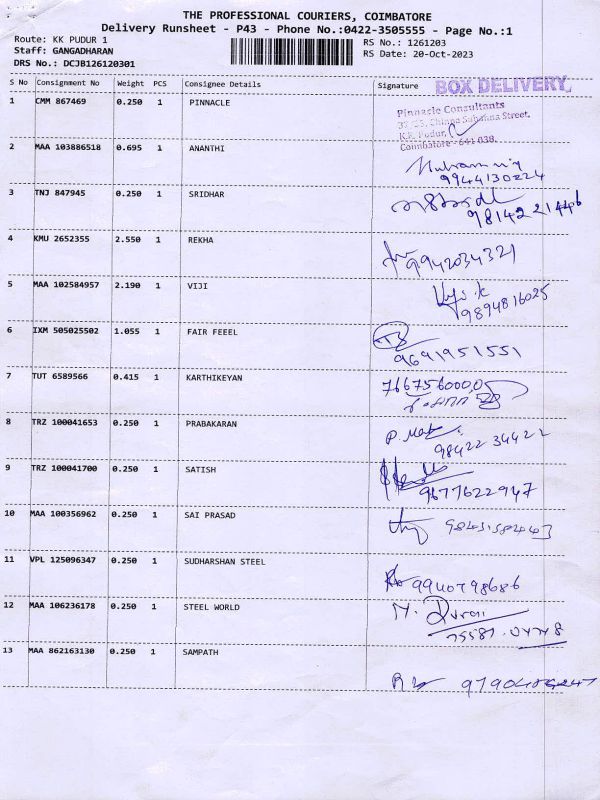 THE PROFESSIONAL COURIERS, COIMBATORE
Delivery Runsheet - P43 - Phone No.:0422-3505555 - Page No.:1
Route: KK PUDUR 1 RS No.: 1261203
Staff: GANGADHARAN RS Date: 20-Oct-2023
DRS No.: DCJB126120301
S No Consignment No Weight PCS Consignee Details Signature BOX DELIVERY
1 CMM 867469 0.250 1 PINNACLE
Pinnacle Consultants
Street,
K.K. Pudur,
Coimbatore - 641 038.
2 MAA 103886518 0.695 1 ANANTHI
9944130224
3 TNJ 847945 0.250 1 SRIDHAR
4 KMU 2652355 2.550 1 REKHA
9942034321
5 MAA 102584957 2.190 1 VIJI
9894816025
6 IXM 505025502 1.055 1 FAIR FEEEL
9691951551
7 TUT 6589566 0.415 1 KARTHIKEYAN
8 TRZ 100041653 0.250 1 PRABAKARAN
98422 34422
9 TRZ 100041700 0.250 1 SATISH
9677622947
10 MAA 100356962 0.250 1 SAI PRASAD
11 VPL 125096347 0.250 1 SUDHARSHAN STEEL
9940798686
12 MAA 106236178 0.250 1 STEEL WORLD
13 MAA 862163130 0.250 1 SAMPATH